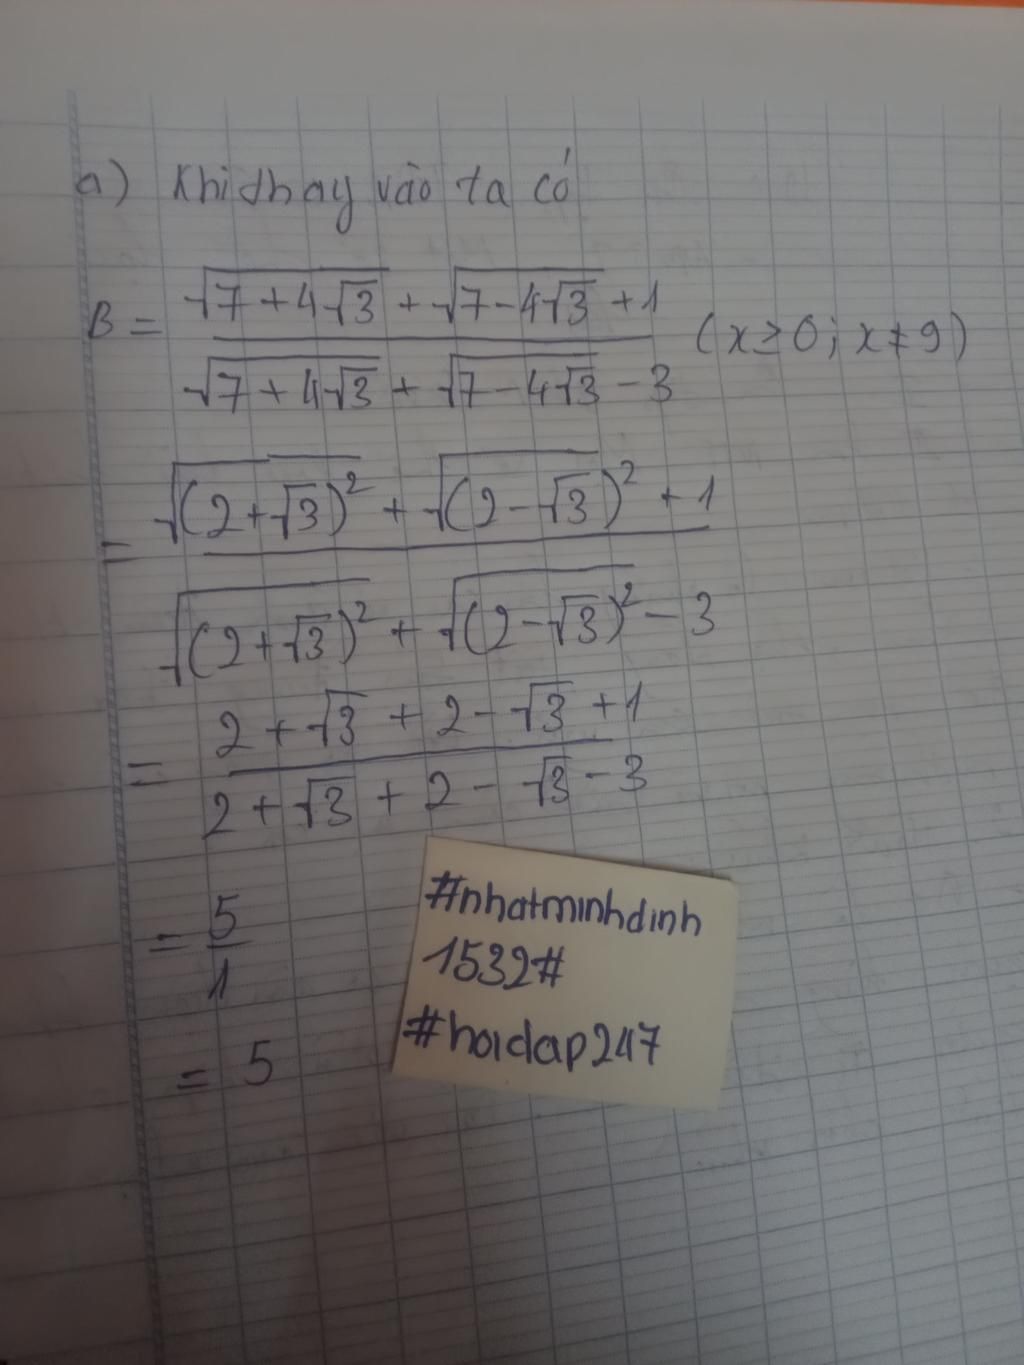 a) Khi thay vào ta có
B = (√(7 + 4√3) + √(7 - 4√3) + 1) / (√(7 + 4√3) + √(7 - 4√3) - 3) (x ≥ 0; x ≠ 9)
= (√((2 + √3)²) + √((2 - √3)²) + 1) / (√((2 + √3)²) + √((2 - √3)²) - 3)
= (2 + √3 + 2 - √3 + 1) / (2 + √3 + 2 - √3 - 3)
= 5/1
= 5
#nhatminhdinh
1532#
#hoidap247